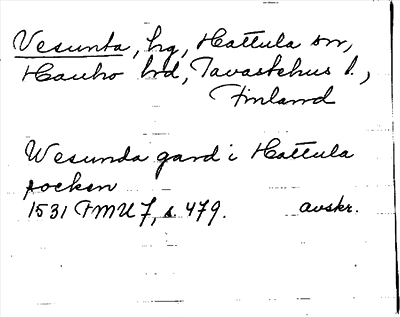 Vesunta, hg, Hattula sn,
Hauho hd, Tavastehus l.,
Finland
Wesunda gard i Hattula
socken
1531 FMU 7, s. 479. avskr.